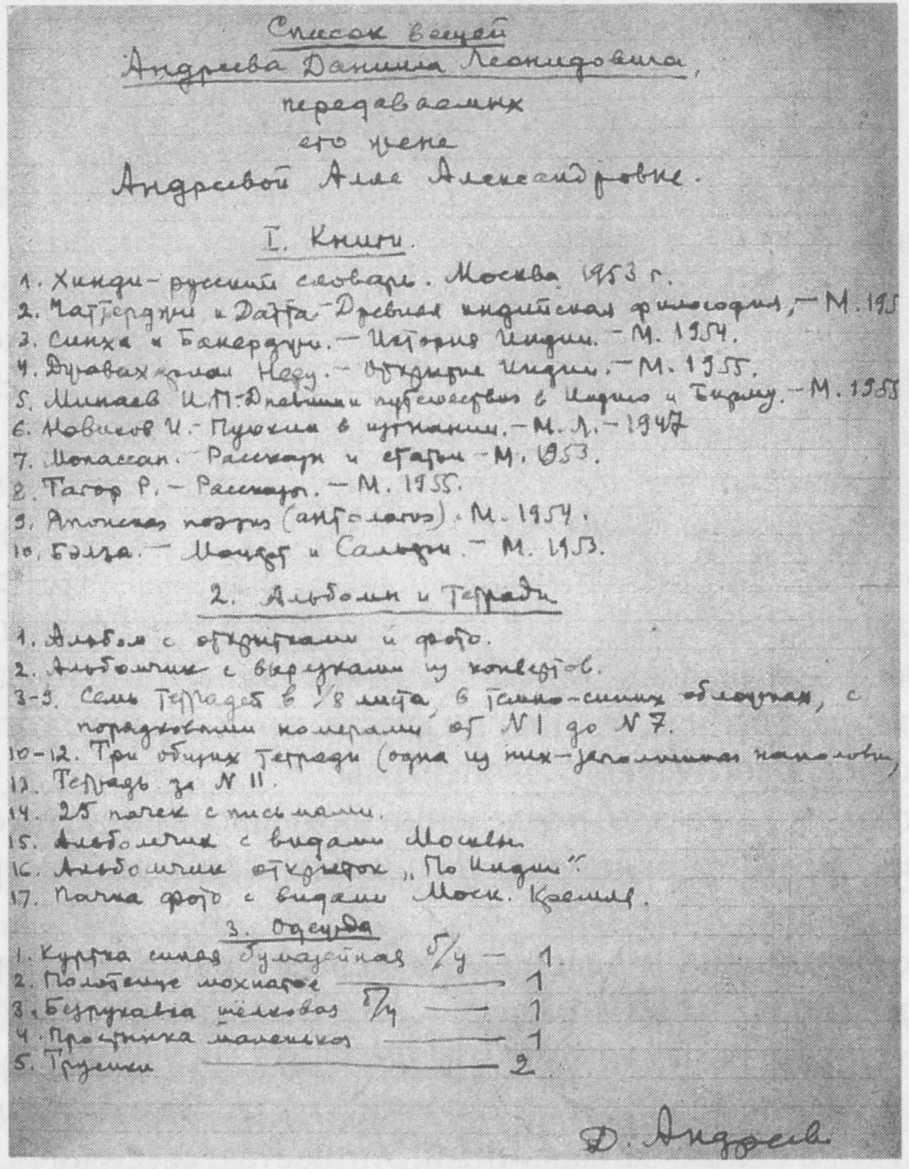 Список вещей
Андреева Даниила Леонидовича,
передаваемых
его жене
Андреевой Алле Александровне.
I. Книги.
1. Хинди-русский словарь. Москва 1953 г.
2. Чаттерджи и Датта - Древняя индийская философия, - М. 195
3. Синха и Банерджи. - История Индии. - М. 1954.
4. Джавахарлал Неру. - Открытие Индии. - М. 1955.
5. Минаев И.П. - Дневники путешествия в Индию и Бирму. - М. 1955
6. Новиков И. - Пушкин в изгнании. - М. Л. - 1947
7. Мопассан. Рассказы и статьи - М. 1953.
8. Тагор Р. - Рассказы. - М. 1955.
9. Японская поэзия (антология). М. 1954.
10. Бэлза. - Моцарт и Сальери. - М. 1953.
2. Альбомы и тетради
1. Альбом с открытками и фото.
2. Альбомчик с вырезками из конвертов.
3-9. Семь тетрадей в 1/8 листа, в темно-синих обложках, с
порядковыми номерами от N 1 до N 7.
10-12. Три общих тетради (одна из них - заполненная наполовину)
13. Тетрадь за N 11.
14. 25 пачек с письмами.
15. Альбомчик с видами Москвы.
16. Альбомчик открыток „По Индии“.
17. Пачка фото с видами Моск. Кремля.
3. Одежда
1. Куртка синяя бумазейная б/у — 1
2. Полотенце мохнатое — 1
3. Безрукавка шёлковая б/у — 1
4. Простынка маленькая — 1
5. Трусики — 2
Д. Андреев